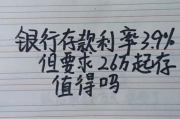 银行存款利率3.9%
但要求26万起存
值得吗